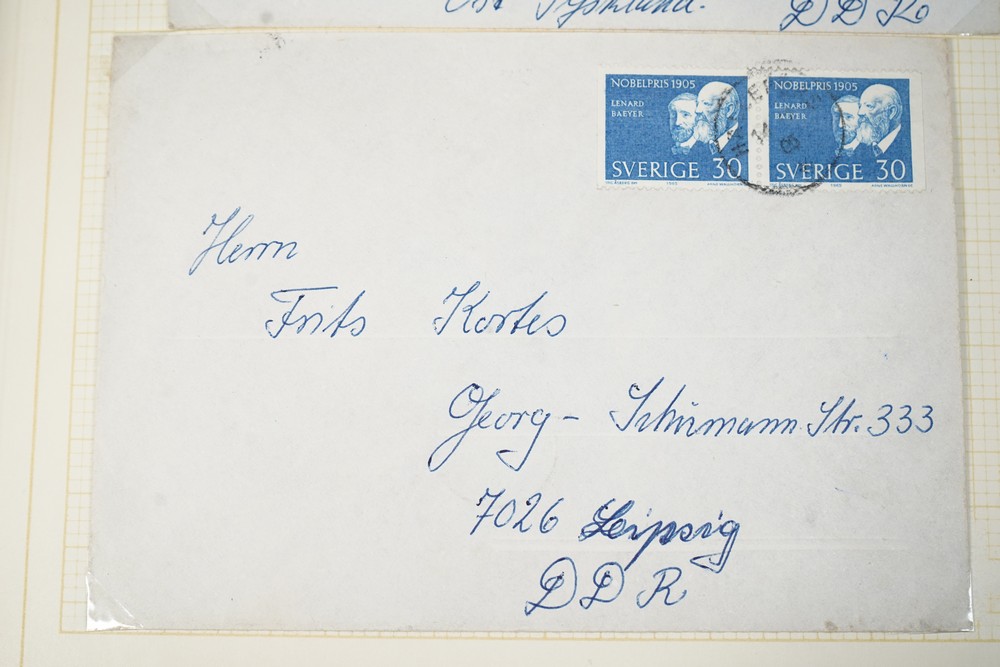 Ost Tyskland. DDR
NOBELPRIS 1905
LENARD
BAEYER
SVERIGE 30
NOBELPRIS 1905
LENARD
BAEYER
SVERIGE 30
Herrn
Frits Kortes
Georg-Schürmann Str. 333
7026 Leipsig
DDR